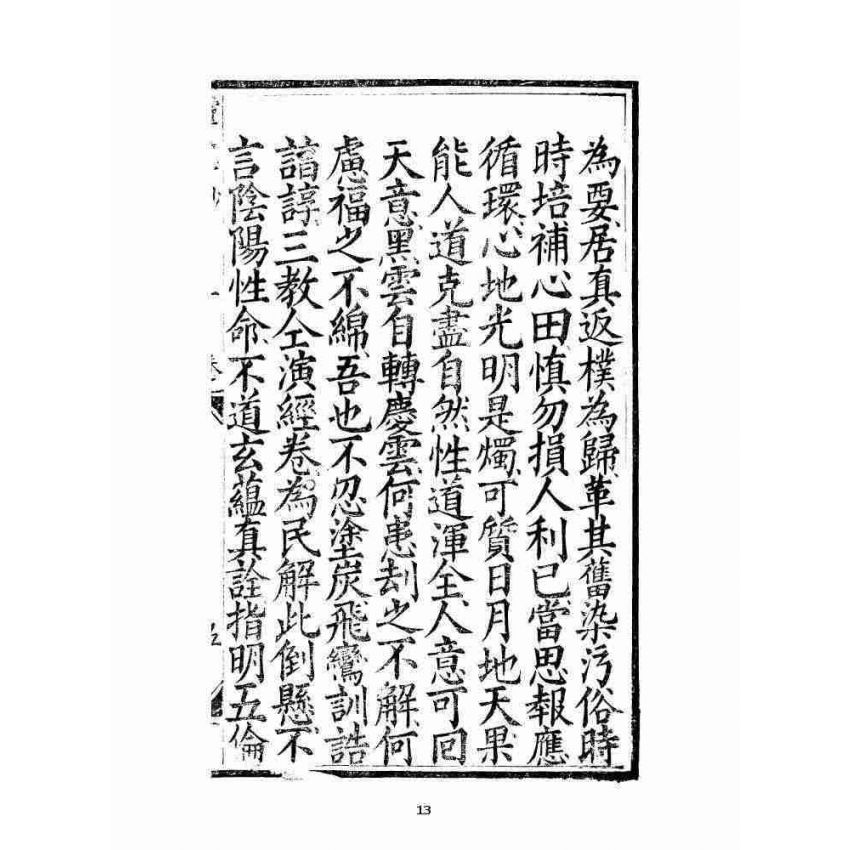 為要居真返樸為歸革其舊染污俗時
時培補心田慎勿損人利已當思報應
循環心地光明是燭可質日月地天果
能人道克盡自然性道渾全人意可回
天意黑雲自轉慶雲何患刦之不解何
慮福之不綿吾也不忍塗炭飛鸞訓誥
諳諄三教仝演經卷為民解此倒懸不
言陰陽性命不道玄蘊真詮指明五倫
13